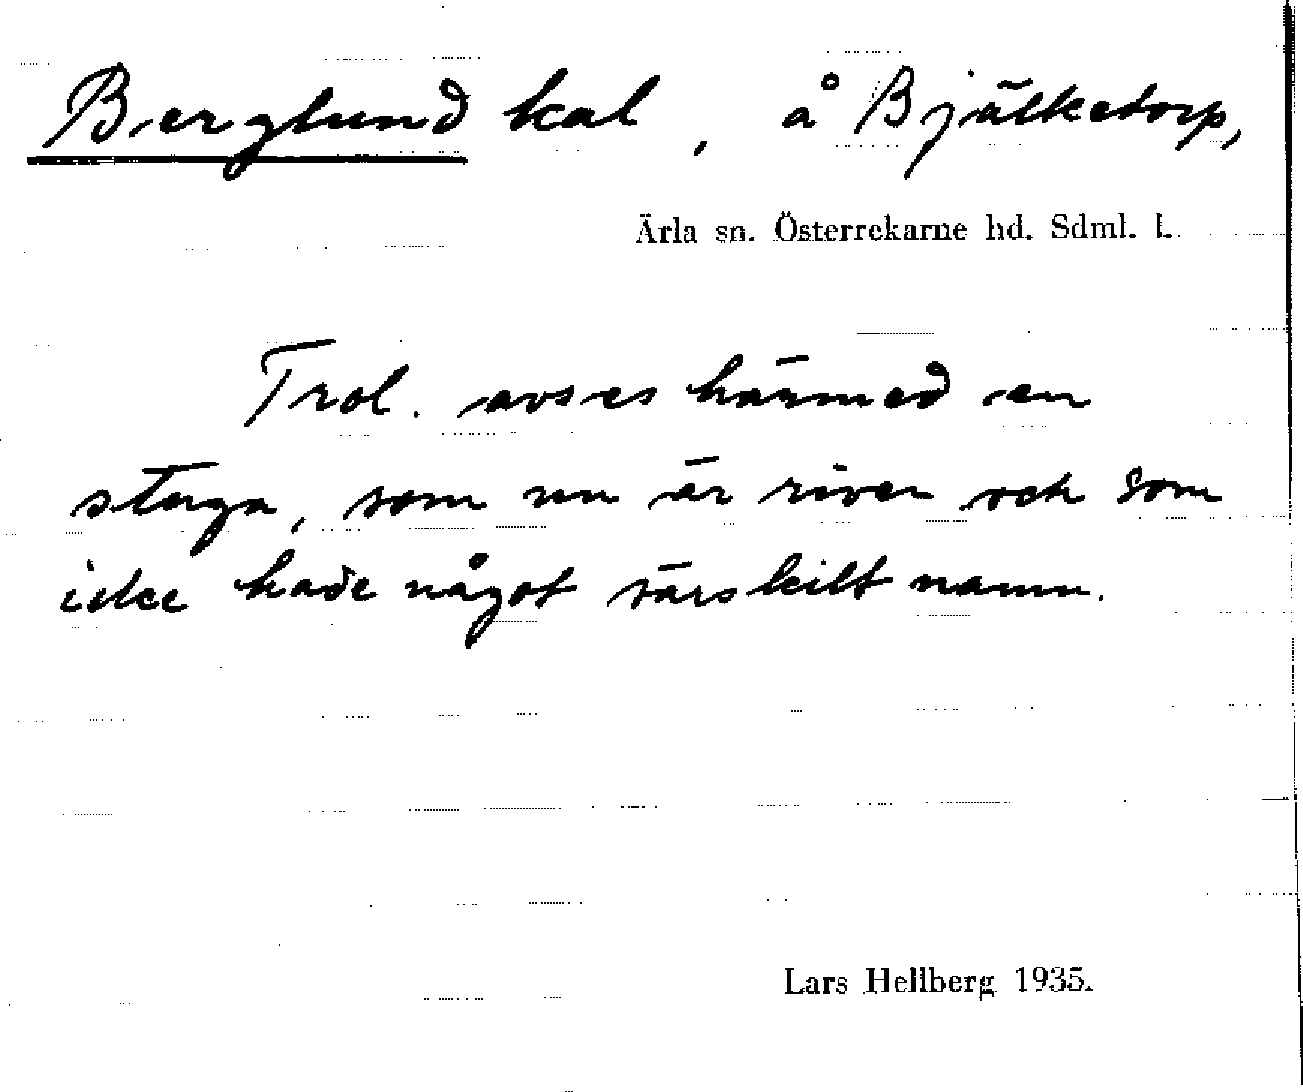 Berglund kal, å Bjälketorp,
Ärla sn. Österrekarne hd. Sdml. l.
Trol. avses härmed en
stuga, som nu är riven och som
icke hade något särskilt namn.
Lars Hellberg 1935.